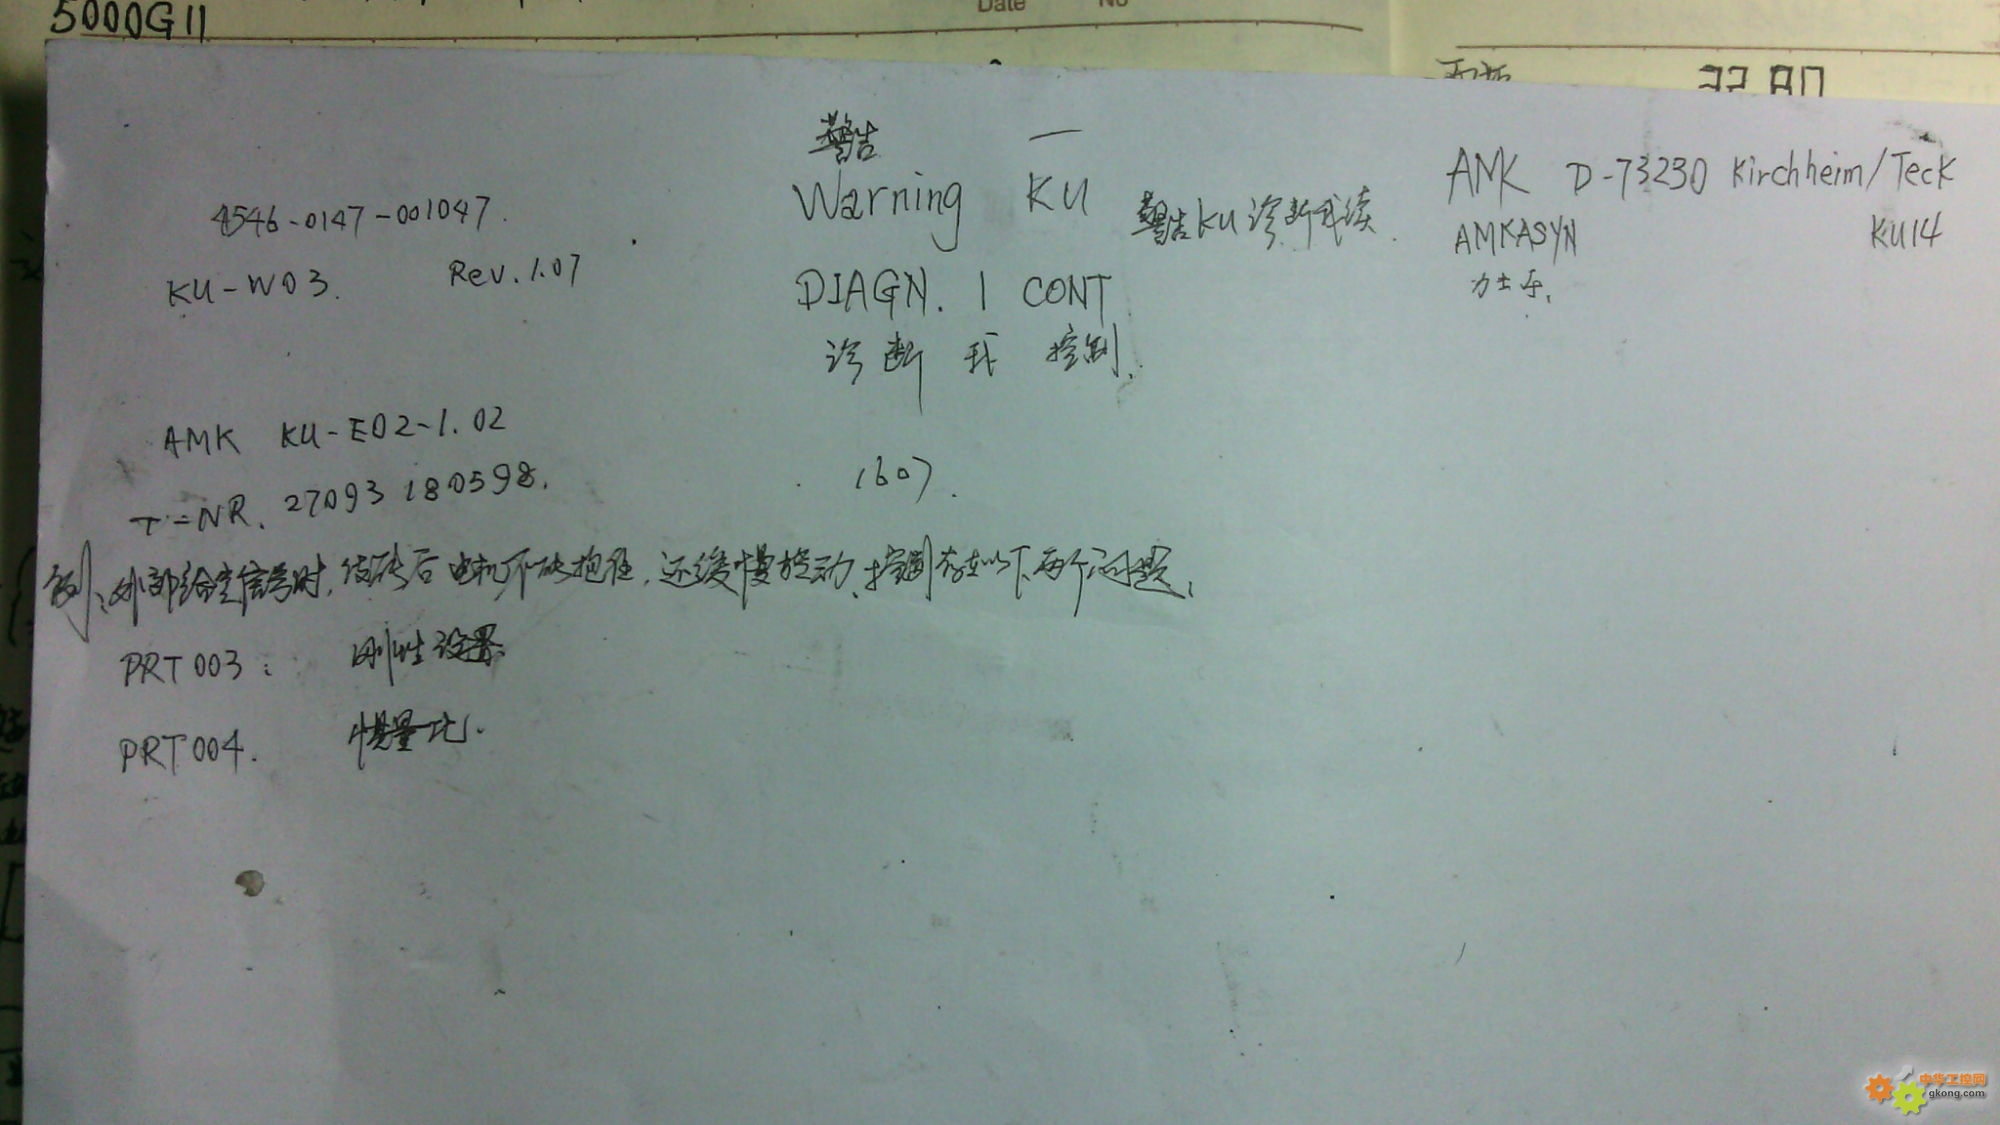 5000G11
Date No
警告 一
Warning KU
警告KU诊断我续
DIAGN. I CONT
诊断 我 控制.
1607.
AMK D-73230 Kirchheim/Teck
AMKASYN KU14
力士乐.
4546-0147-001047.
KU-W03. Rev.1.07
AMK KU-E02-1.02
T=NR. 27093 180598.
例:外部给定信号时,使能后电机不能抱住,还缓慢转动,控制存在以下两个问题,
PRT003: 刚性设置.
PRT004. 惯量比.
中华工控网
gkong.com